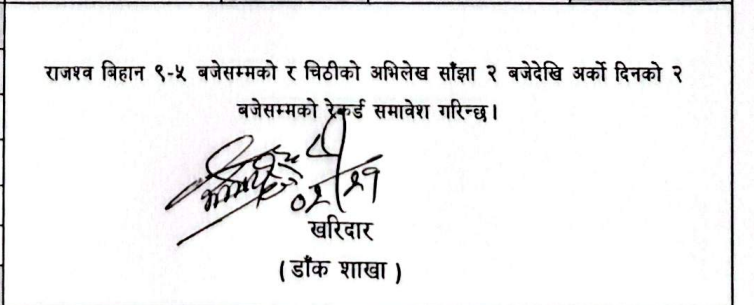 राजश्व बिहान ९-५ बजेसम्मको र चिठीको अभिलेख साँझा २ बजेदेखि अर्को दिनको २
बजेसम्मको रेकर्ड समावेश गरिन्छ।
खरिदार
(डाँक शाखा)